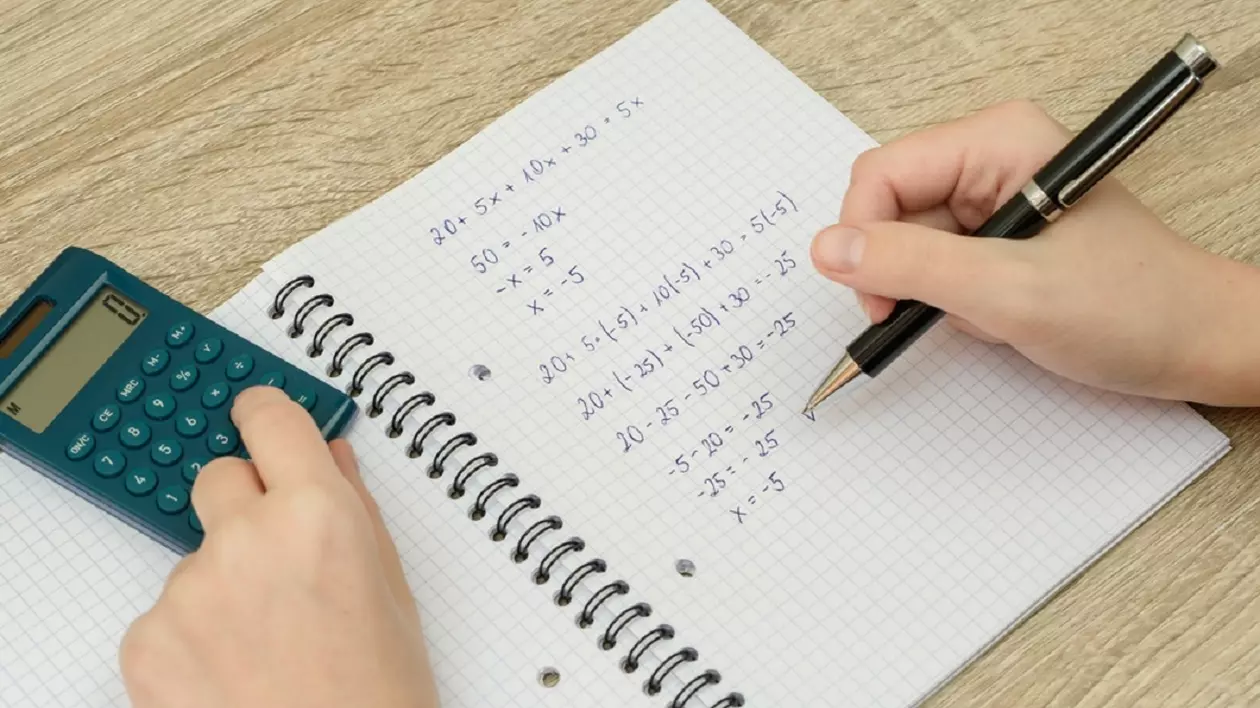 20 + 5x + 10x + 30 = 5x
50 = -10x
-x = 5
x = -5
20 + 5·(-5) + 10(-5) + 30 = 5(-5)
20 + (-25) + (-50) + 30 = -25
20 - 25 - 50 + 30 = -25
-5 - 20 = -25
-25 = -25
x = -5
0.
M
M+
M-
√
MRC
%
÷
CE
9
×
-
ON/C
8
6
=
7
5
3
4
2
1